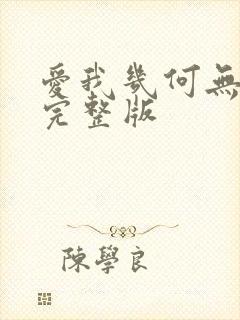 愛我幾何無
完整版
陳學良